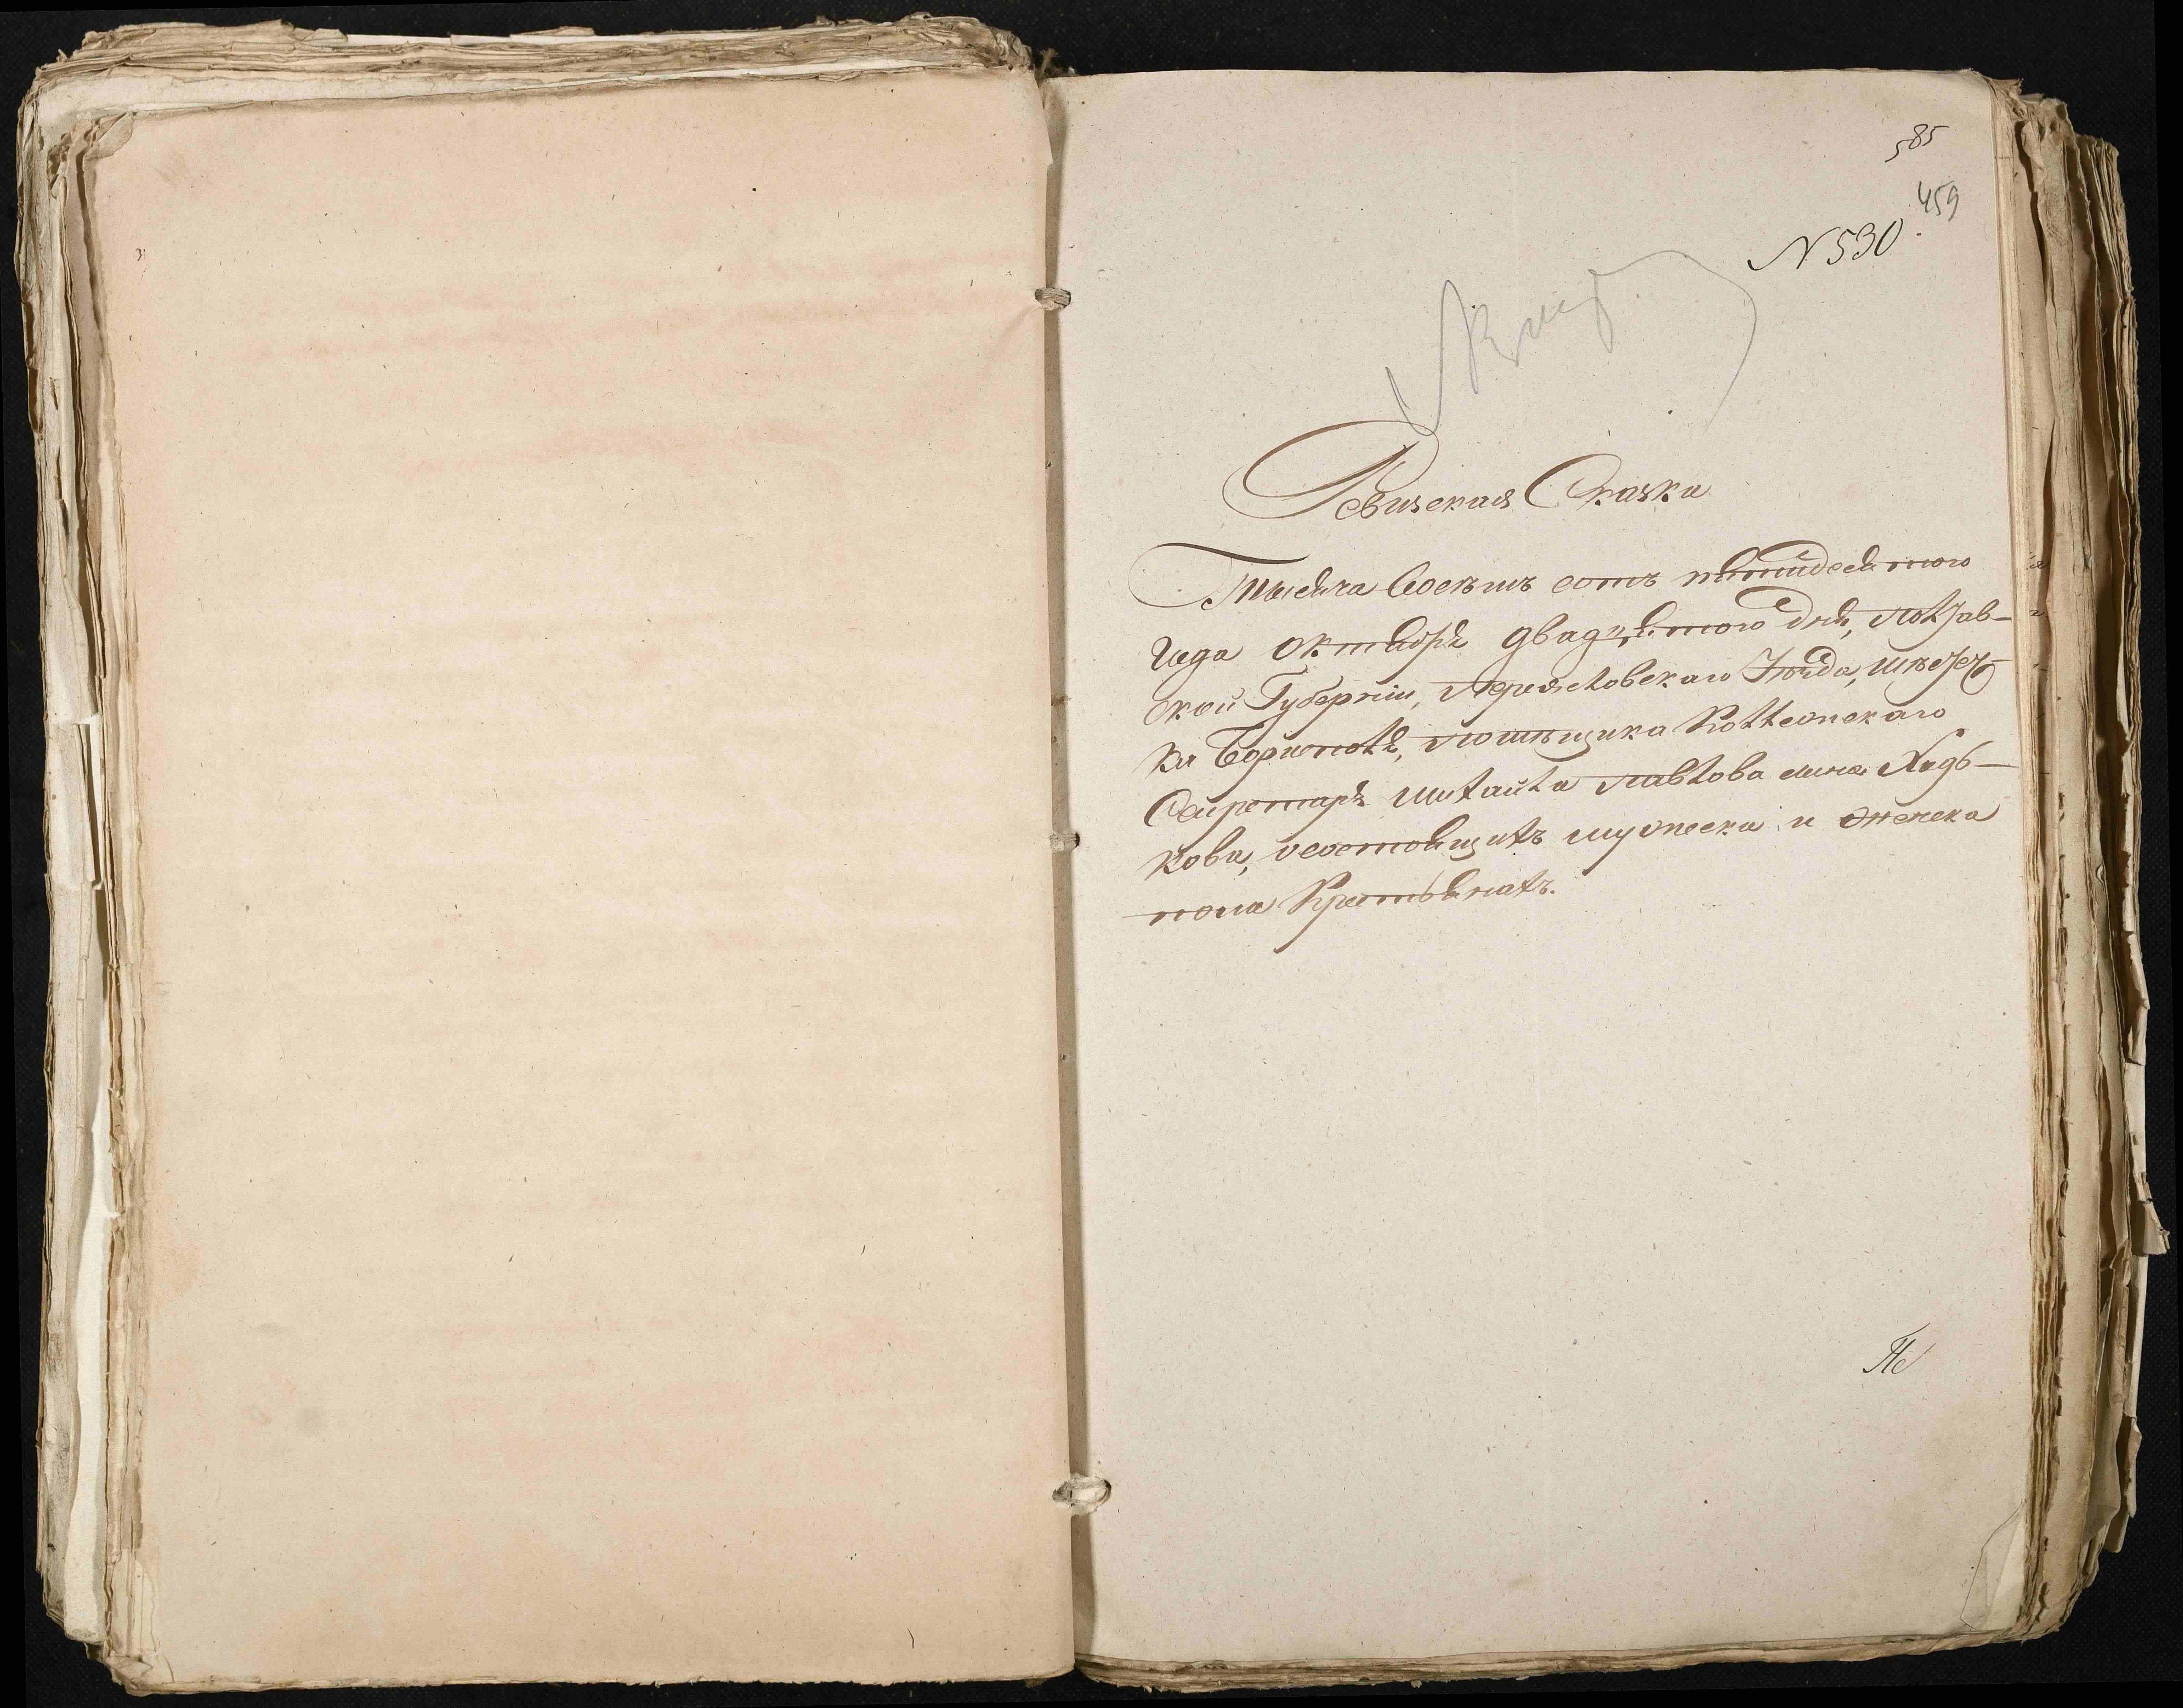 585
459
N 530.
Ревизская Сказка
Тысяча восемь сотъ пятидесятого
года октября двадцатого дня, Полтав-
ской Губернии, Переяславскаго Уезда,
ки Борисполя, помещика Коллежскаго
Секретаря Михайла Павлова сына
кова, о состоящихъ мужеска и женска
пола Крестьянахъ.